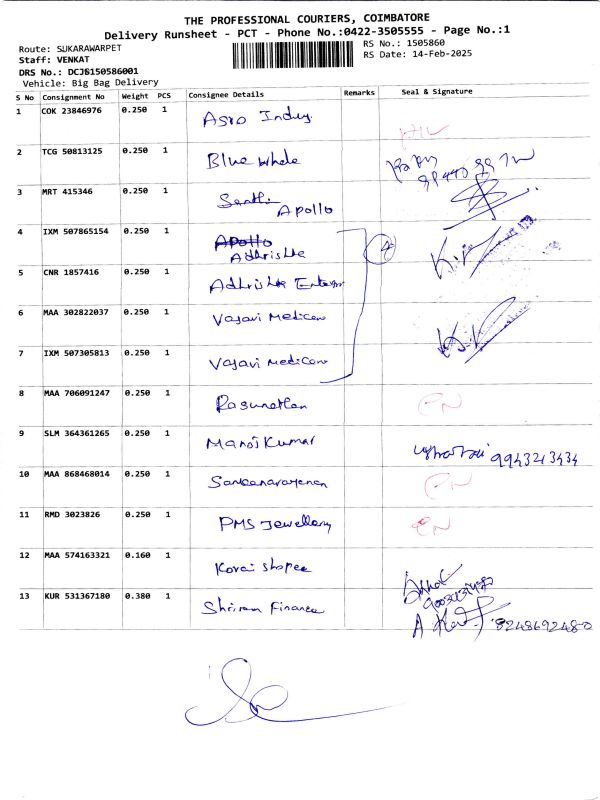 THE PROFESSIONAL COURIERS, COIMBATORE
Delivery Runsheet - PCT - Phone No.:0422-3505555 - Page No.:1
Route: SUKARAWARPET
RS No.: 1505860
Staff: VENKAT
RS Date: 14-Feb-2025
DRS No.: DCJS150586001
Vehicle: Big Bag Delivery
S No Consignment No Weight PCS Consignee Details Remarks Seal & Signature
1 COK 23846976 0.250 1
2 TCG 50813125 0.250 1 Blue Whale
3 MRT 415346 0.250 1 Apollo
4 IXM 507865154 0.250 1 Apollo
Adhrishke
4
5 CNR 1857416 0.250 1 Adhrishke
6 MAA 302822037 0.250 1 Vasavi Medicare
7 IXM 507305813 0.250 1 Vasavi Medicare
8 MAA 706091247 0.250 1
9 SLM 364361265 0.250 1 Manoj Kumar 9943243434
10 MAA 868468014 0.250 1 Sankaranarayanan
11 RMD 3023826 0.250 1 PMS Jewellery
12 MAA 574163321 0.160 1 Korai Shopee
13 KUR 531367180 0.380 1 Shriram Finance
8248692480